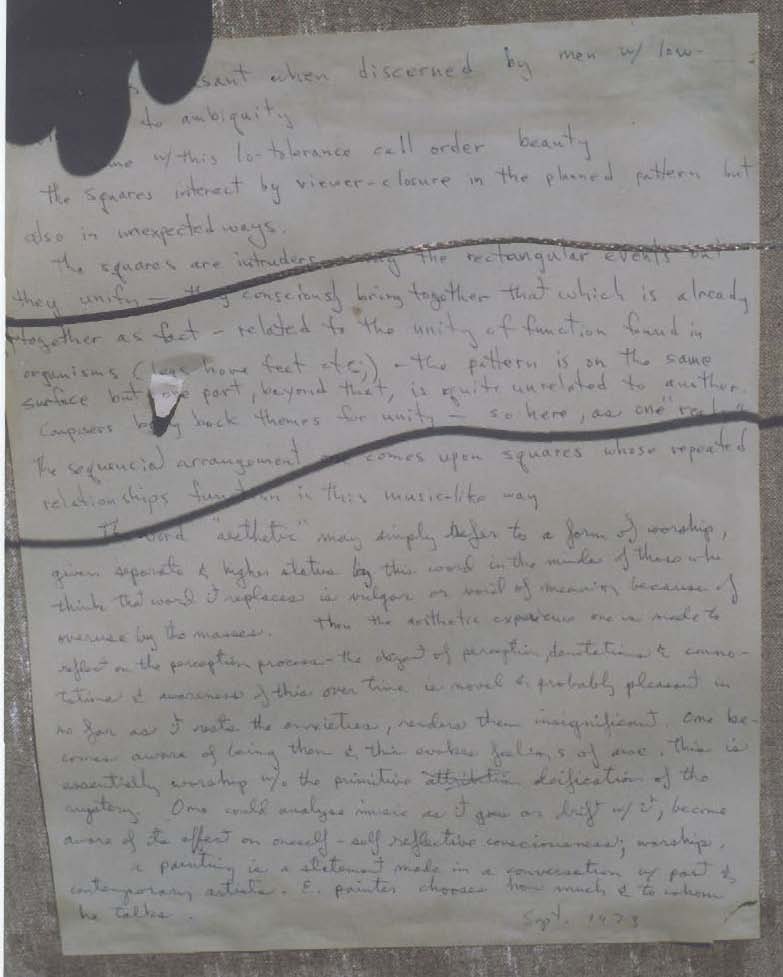 sant when discerned by men w/ low-
to ambiguity
w/ this lo-tolerance call order beauty
The squares interect by viewer-closure in the planned pattern but
also in unexpected ways.
The squares are intruders the rectangular events but
they unify - they consciously bring together that which is already
together as fact - related to the unity of function found in
organisms (legs have feet etc;) - the pattern is on the same
surface but one part, beyond that, is quite unrelated to another.
Composers back themes for unity - so here, as one
the sequencial arrangement comes upon squares whose repeated
relationships function in this music-like way
The word "aesthetic" may simply refer to a form of worship,
given separate & higher status by this word in the minds of those who
think the word it replaces is vulgar or void of meaning because of
overuse by the masses. Thru the aesthetic experience one is made to
reflect on the perception process - the object of perception, denotations & conno-
tations & awareness of this over time is novel & probably pleasant in
so far as it rests the anxieties, renders them insignificant. One be-
comes aware of being then & this evokes feelings of awe. This is
essentially worship w/o the primitive attribution deification of the
mystery. One could analyze music as it goes or drift w/ it, become
aware of its effect on oneself - self reflective consciousness; worship.
a painting is a statement made in a conversation w/ past &
contemporary artists. E. painter chooses how much & to whom
he talks.
Sept. 1973